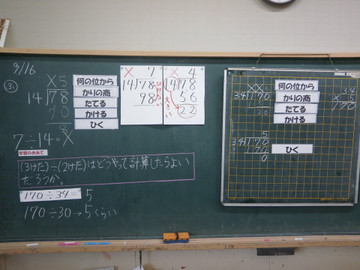 9/16
③
×5
14)78
70
何の位から
かりの商
たてる
かける
ひく
7÷14=×
学習のめあて
(3けた)÷(2けた)はどうやって計算したらよい
だろうか。
170÷34= 5
170÷30→5くらい
× 7
14)78
98
× 4
14)78
56
22
何の位から
かりの商
たてる
かける
34)170
5
34)170
170
0
ひく